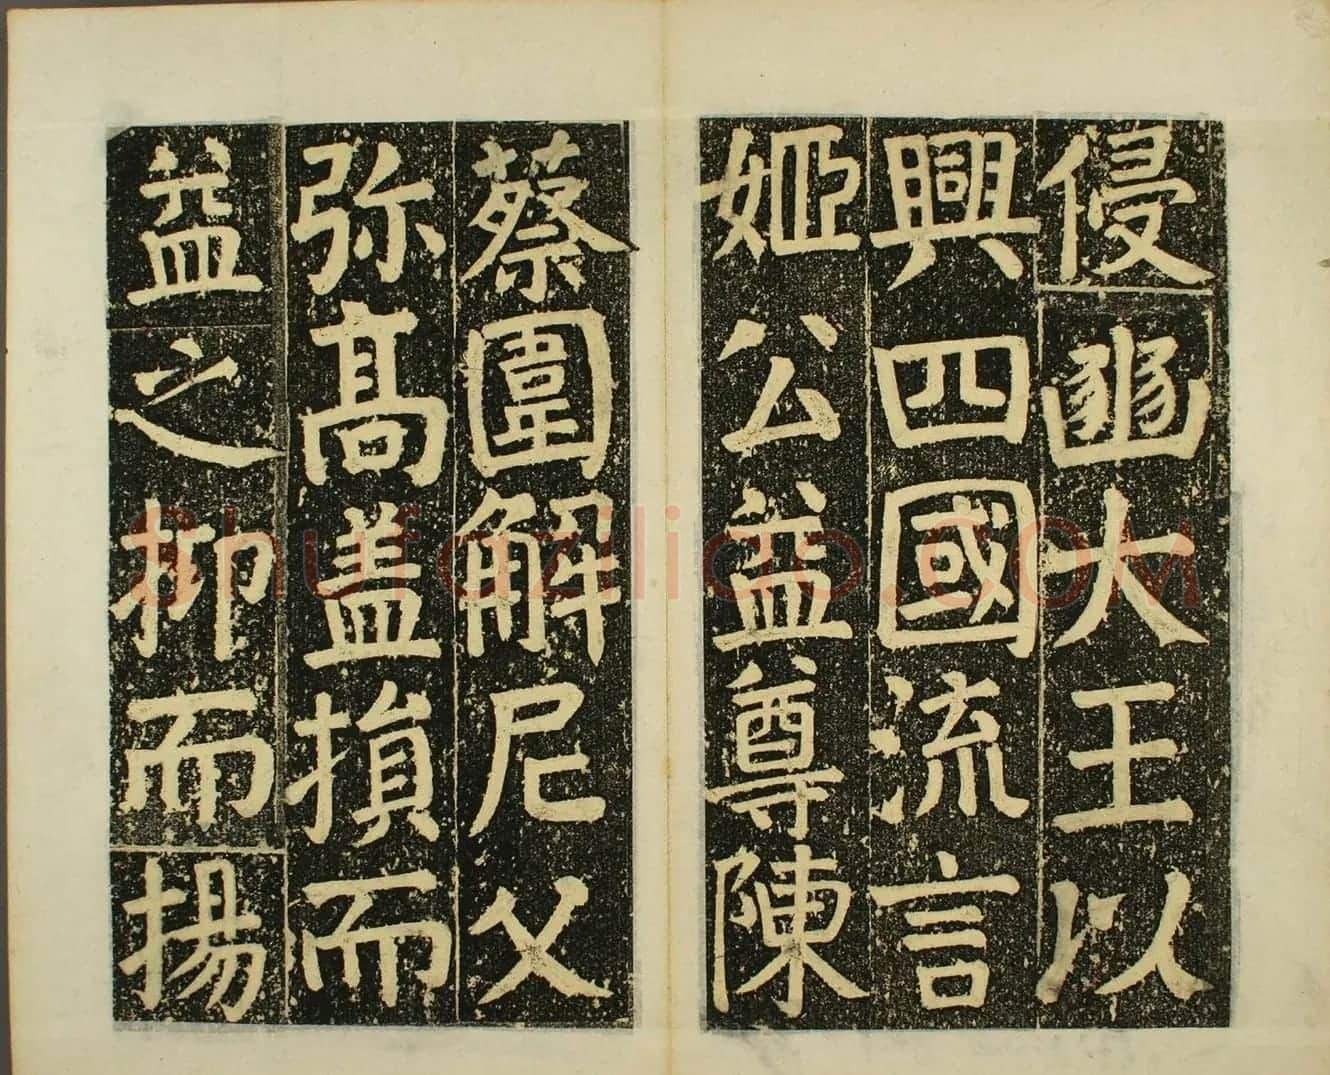 侵豳大王以
興四國流言
姬公益尊陳
蔡圍解尼父
弥髙盖損而
益之抑而揚
Shufaziliao.COM